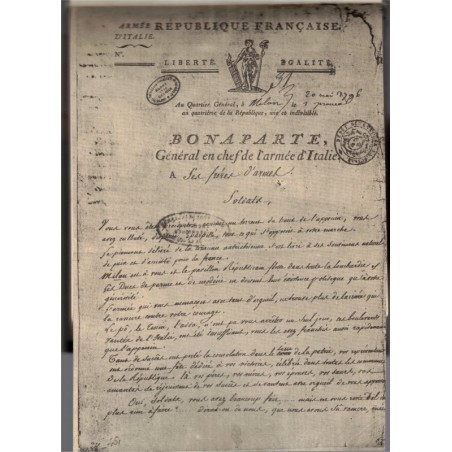 ARMÉE D'ITALIE.
RÉPUBLIQUE FRANÇAISE.
N.º
LIBERTÉ
EGALITÉ.
20 mai 1796
Au Quartier Général, à Milan le 1 prairial
an quatrième de la République, une et indivisible.
BONAPARTE,
Général en chef de l'armée d'Italie,
A Ses frères d'armes
Soldats,
Vous vous êtes précipités comme un torrent du haut de l'apennin, vous
avez culbuté, dispersé, tout ce qui s'opposait à votre marche.
Le piemont délivré de la tirannie autrichienne s'est livré à ses sentimens naturels
de paix et d'amitié pour la france.
Milan est à vous et le pavillon Républicain flotte dans toute la lombardie
Les Ducs de parme et de modène ne doivent leur existence politique qu'à votre
générosité.
L'armée qui vous menaçait avec tant d'orgueil, ne trouve plus de barrière qui
la rassure contre votre courage.
Le pô, le Tessin, l'adda, n'ont pu vous arrêter un seul jour, ces boulevards
vantés de l'Italie, ont été insuffisants, vous les avez franchis aussi rapidement
que l'apennin.
Tant de succès ont porté la joie dans le sein de la patrie, vos représentans
ont ordonné une fête dédiée à vos victoires, célébrée dans toutes les communes
De la République là vos pères, vos mères, vos épouses, vos sœurs, vos
amantes se réjouissent de vos succès et se vantent avec orgueil de vous appartenir
Oui, Soldats, vous avez beaucoup fait ... mais ne vous reste-t-il
plus rien à faire? dira-t-on de nous, que nous avons su vaincre, mais